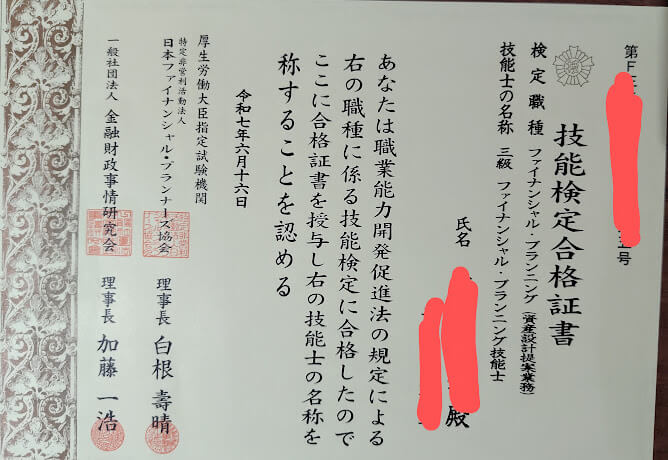 第F
五号
技能検定合格証書
検定職種 ファイナンシャル・プランニング(資産設計提案業務)
技能士の名称 三級 ファイナンシャル・プランニング技能士
氏名
殿
あなたは職業能力開発促進法の規定による
右の職種に係る技能検定に合格したので
ここに合格証書を授与し右の技能士の名称を
称することを認める
令和七年六月十六日
厚生労働大臣指定試験機関
特定非営利活動法人
日本ファイナンシャル・プランナーズ協会
理事長 白根壽晴
一般社団法人 金融財政事情研究会
理事長 加藤一浩